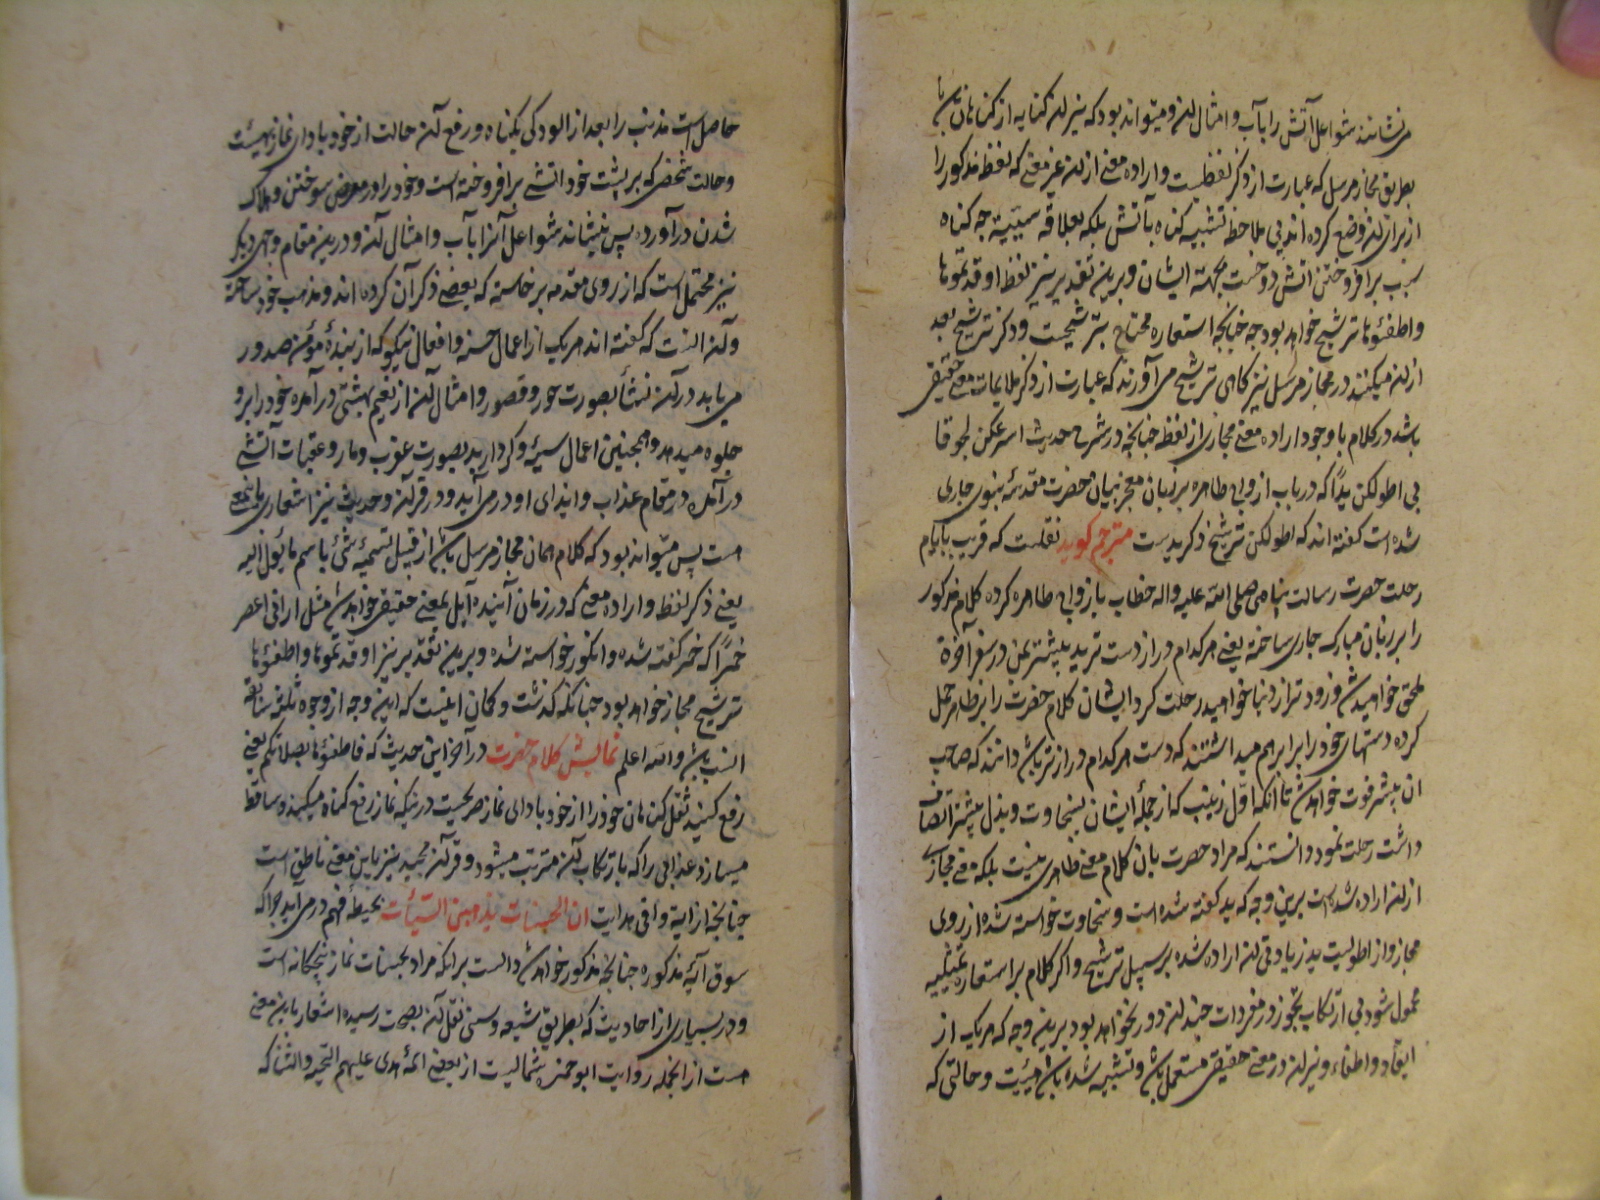 می نشانند شواعل آتش را بآب و امثال آن و میتواند بود که نیز آن کنایه از کناهان با
بطریق مجاز مرسل که عبارت از ذکر لفظست و اراده معنی از آن غیر معنی که لفظ مذکور را
از برای آن وضع کرده اند بی ملاحظه تشبیه کناه بآتش بلکه بعلاقه سببیت چه کناه
سبب برافروختن آتش دوزخست بجهة ایشان و برین تقدیر نیز لفظ اوقدتموها
و اطفئوها ترشیح خواهد بود چه چنانچه استعاره محتاج بترشیحست و ذکر ترشیح بعد
از آن میکنند در مجاز مرسل نیز کاهی ترشیح می آورند که عبارت از ذکر ملایمات معنی حقیقی
باشد در کلام با وجود اراده معنی مجازی از لفظ چنانچه در شرح حدیث اسرعکن لحوقا
بی اطولکن یدًا که در باب ازواج طاهره بر زبان معجز بیان حضرت مقدسهٔ نبوی جاری
شده است کفته اند که اطولکن ترشیح ذکر یدست مترجم کوید نقلست که قریب بایام
رحلت حضرت رسالت پناهی صلی الله علیه واله خطاب بازواج طاهره کرده کلام مذکور
را بر زبان مبارک جاری ساخته یعنی هر کدام دراز دست ترید پیشتر بمن در سفر آخرة
ملحق خواهید شد و زودتر از دنیا خواهید رحلت کرد ایشان کلام حضرت را بر ظاهر حمل
کرده دستهای خود را برابر هم میداشتند که دست هر کدام درازتر باشد دانند که صاحب
آن پیشتر فوت خواهد شد تا آنکه اوّل زینب که از جملهٔ ایشان بسخاوت و بذل بیشتر اتصاف
داشت رحلت نمود دانستند که مراد حضرت بآن کلام معنی ظاهری نیست بلکه معنی مجازی
از آن اراده شده است برین وجه که ید کفته شده است و سخاوت خواسته شده از روی
مجاز و از اطولیت ید زیادتی آن اراده شده بر سبیل ترشیح و اکر کلام بر استعاره تمثیلیه
محمول شود بی ارتکاب تجوز در مفردات چندان دور نخواهد بود برین وجه که هر یک از
ایقاد و اطفاء و نیران در معنی حقیقی مستعمل باشد و تشبیه شده باشد هیئت و حالتی که
حاصل است مذنب را بعد از الودکی بکناه و رفع آن حالت از خود باداى نماز بهیئت
و حالت شخصی که بر پشت خود اتشی برافروخته است و خود را در معرض سوختن و هلاک
شدن درآورده پس بنشاند شواعل آنرا بآب و امثال آن و درین مقام وجهی دیکر
نیز محتمل است که از روی مقدمه برخاسته که بعضی ذکر آن کرده اند و مذهب خود ساخته
و آن اینست که کفته اند هر یک از اعمال حسنه و افعال نیکو که از بندهٔ مؤمن صدور
می یابد در آن نشأ بصورت حور و قصور و امثال آن از نعیم بهشتی درآمده خود را برو
جلوه میدهد و همچنین اعمال سیئه و کردار بد بصورت عقرب و مار و عقبات آتشی
درآمده در مقام عذاب و ایذای او در می آید و در قرآن و حدیث نیز اشعاری بانمعنی
هست پس میتواند بود که کلام همان مجاز مرسل باشد از قبیل تسمیهٔ شئ باسم مایؤل الیه
یعنی ذکر لفظ و اراده معنی که در زمان آینده آیل بمعنی حقیقی خواهد شد مثل ارانی اعصر
خمرًا که خمر کفته شده و انکور خواسته شده و برین تقدیر نیز اوقدتموها و اطفئوها
ترشیح مجاز خواهد بود چنانکه کذشت و کمان اینست که این وجه از وجوه ثلثهٔ سابقه
انسب باشد والله اعلم نمایش کلام حضرت در آخر این حدیث که فاطفئوها بصلاتکم یعنی
رفع کنید ثقل کناهان خود را از خود بادای نماز صریحست در نیکه نماز رفع کناه میکند و ساقط
میسازد عذابی را که بارتکاب آن مترتب میشود و قرآن مجید نیز باین معنی ناطق است
چنانچه از آیهٔ وافی هدایت ان الحسنات یذهبن السیئات بحیطهٔ فهم در می آید چرا که
سوق آیهٔ مذکوره چنانچه مذکور خواهد شد دالست برانکه مراد بحسنات نماز پنجکانه است
و در بسیاری از احادیث که بطریق شیعه و سنی نقل آن بصحت رسیده اشعار باین معنی
هست از انجمله روایت ابوحمزه ثمالیست از بعضی ائمهٔ هدی علیهم التحیه والثنا که